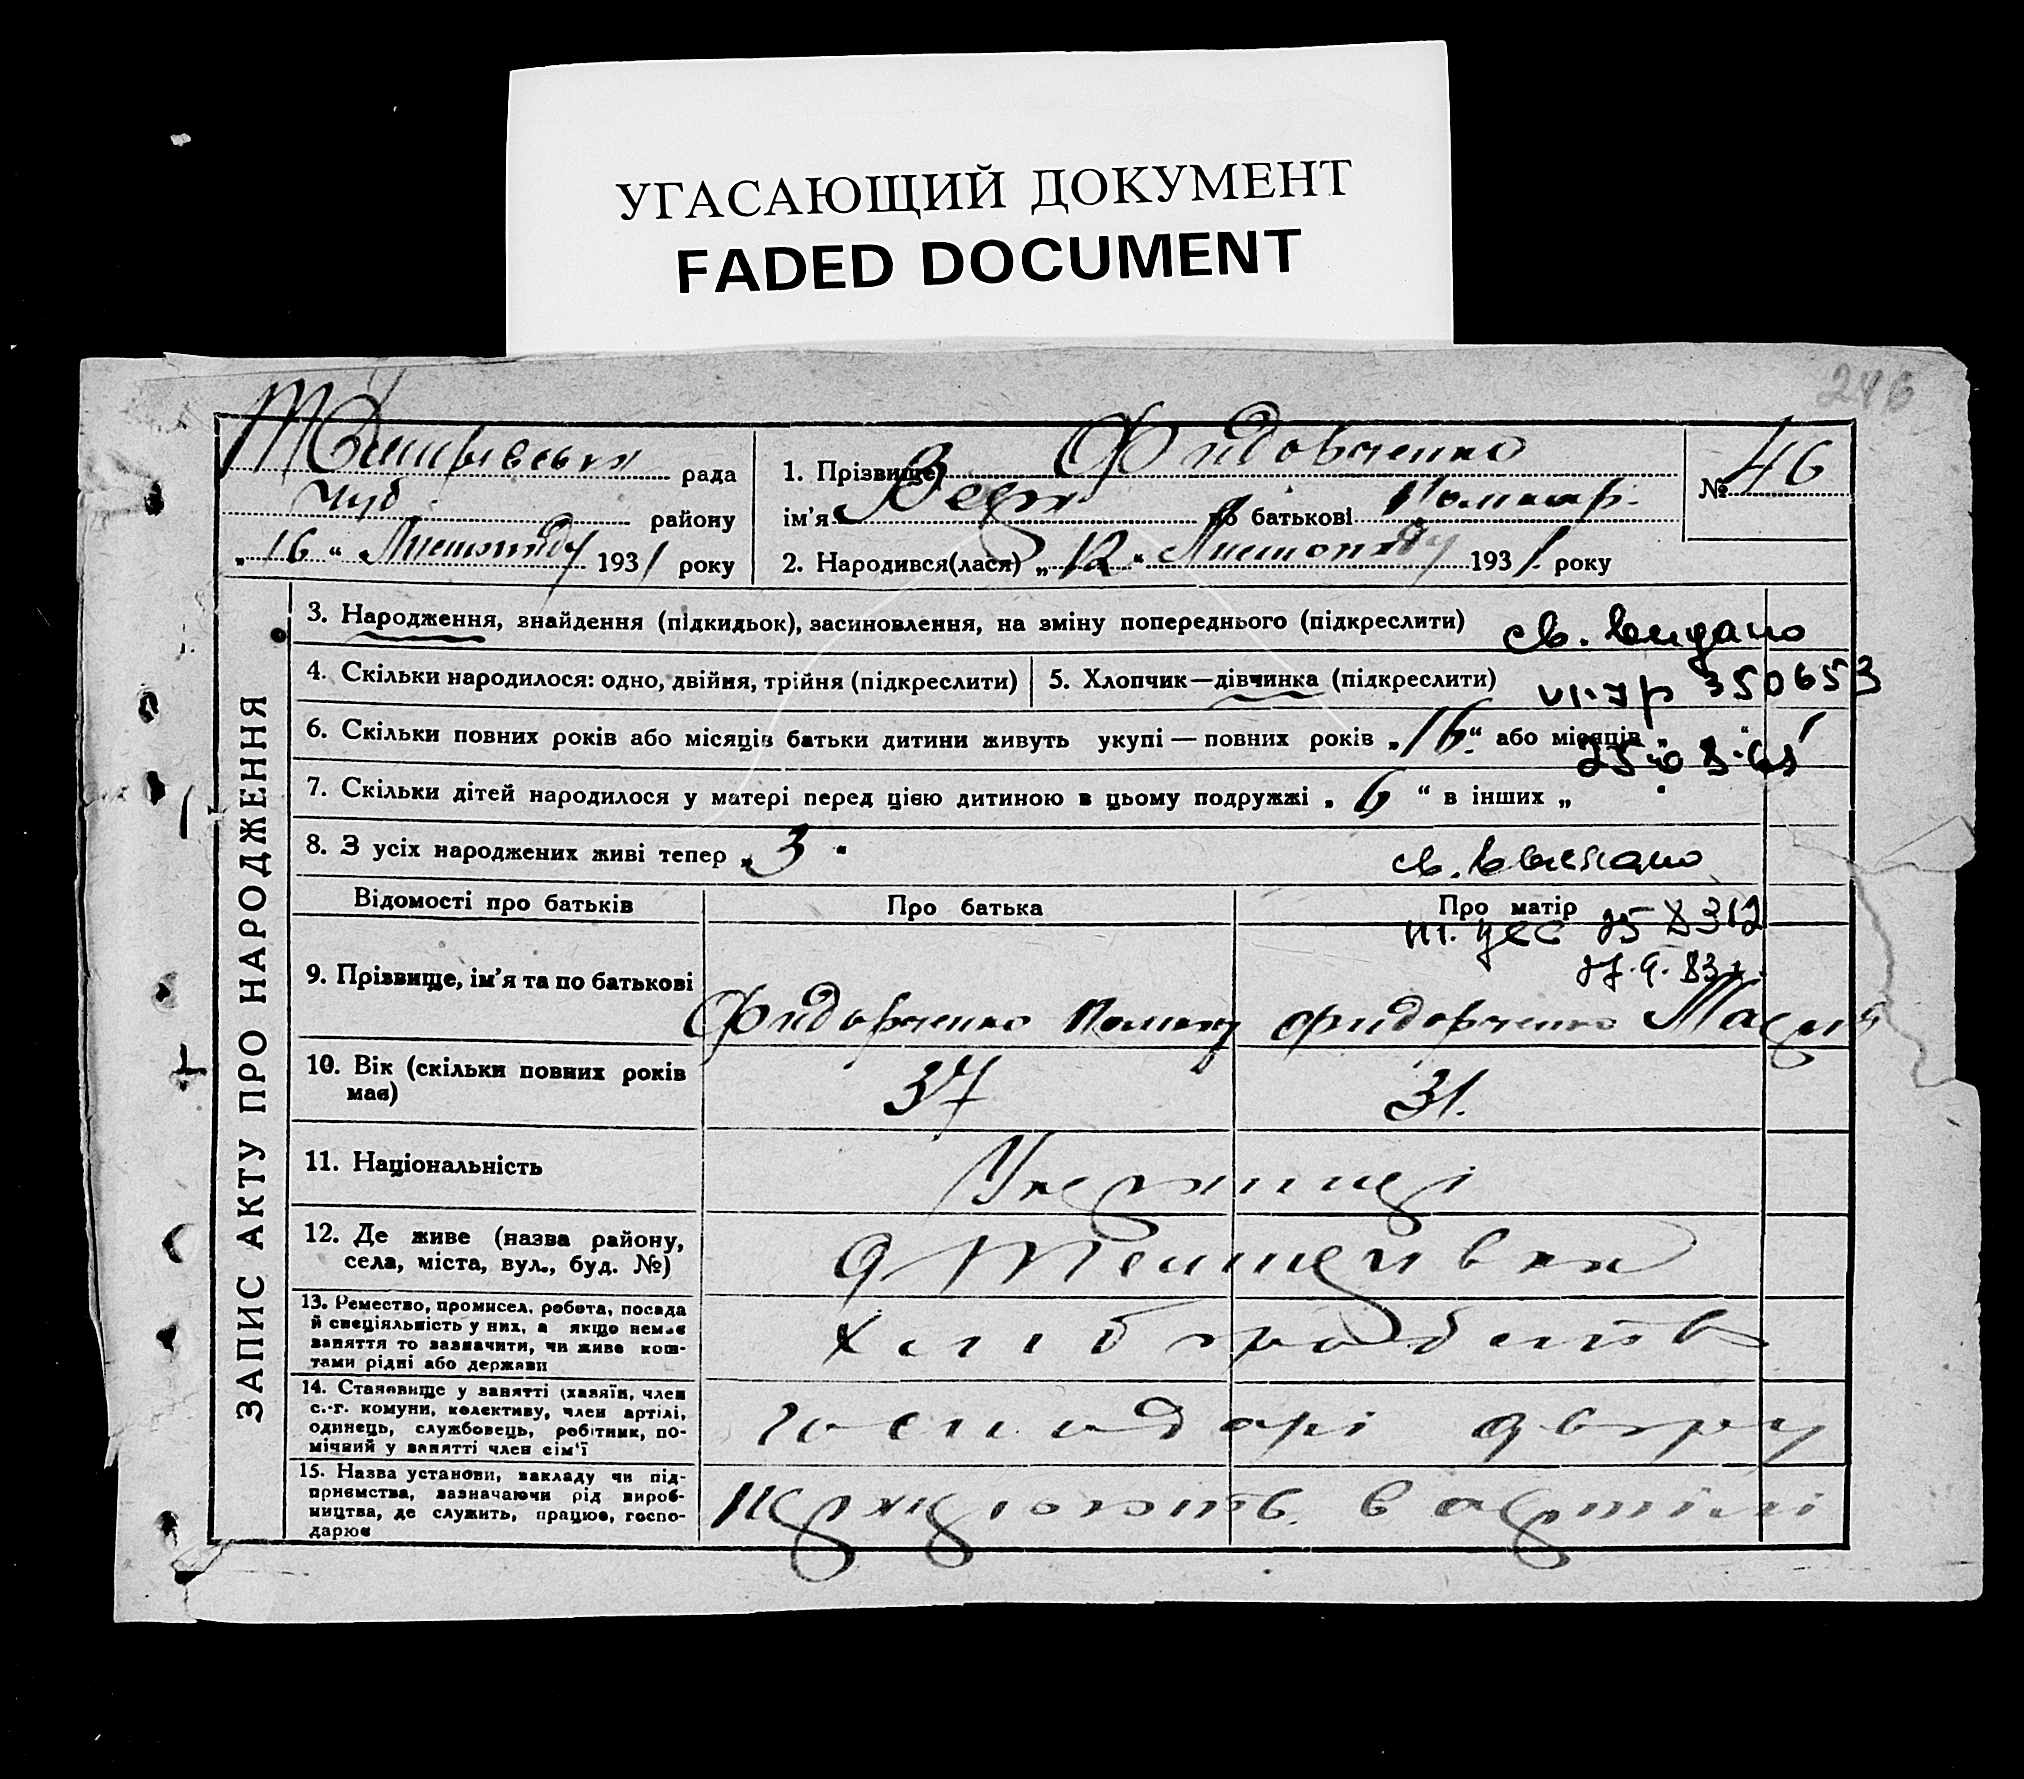 УГАСАЮЩИЙ ДОКУМЕНТ
FADED DOCUMENT
246
рада
Чуб. району
„16“ Листопаду 1931 року
1. Прізвище Фидовченко
ім’я Вера по батькові
2. Народився(лася) „12“ Листопаду 1931 року
№ 46
ЗАПИС АКТУ ПРО НАРОДЖЕННЯ
3. Народження, знайдення (підкидьок), засиновлення, на зміну попереднього (підкреслити)
св. видано
4. Скільки народилося: одно, двійня, трійня (підкреслити)
5. Хлопчик—дівчинка (підкреслити)
350653
6. Скільки повних років або місяців батьки дитини живуть укупі — повних років „16“ або місяців „ “
7. Скільки дітей народилося у матері перед цією дитиною в цьому подружжі „6“ в інших „ “
8. З усіх народжених живі тепер „3“
св.
Відомості про батьків
Про батька
Про матір
9. Прізвище, ім’я та по батькові
Фидорченко
Фидорченко Мария
10. Вік (скільки повних років
має)
37
31.
11. Національність
Украинці
12. Де живе (назва району,
села, міста, вул., буд. №)
13. Ремество, промисел, робота, посада
й спеціяльність у них, а якщо немає
заняття то зазначити, чи живе кош-
тами рідні або держави
14. Становище у занятті (хазяїн, член
с.-г. комуни, колективу, член артілі,
одинець, службовець, робітник, по-
мічний у занятті член сім’ї
господарі двору
15. Назва установи, закладу чи під-
приємства, зазначаючи рід вироб-
ництва, де служить, працює, госпо-
дарює
в артілі